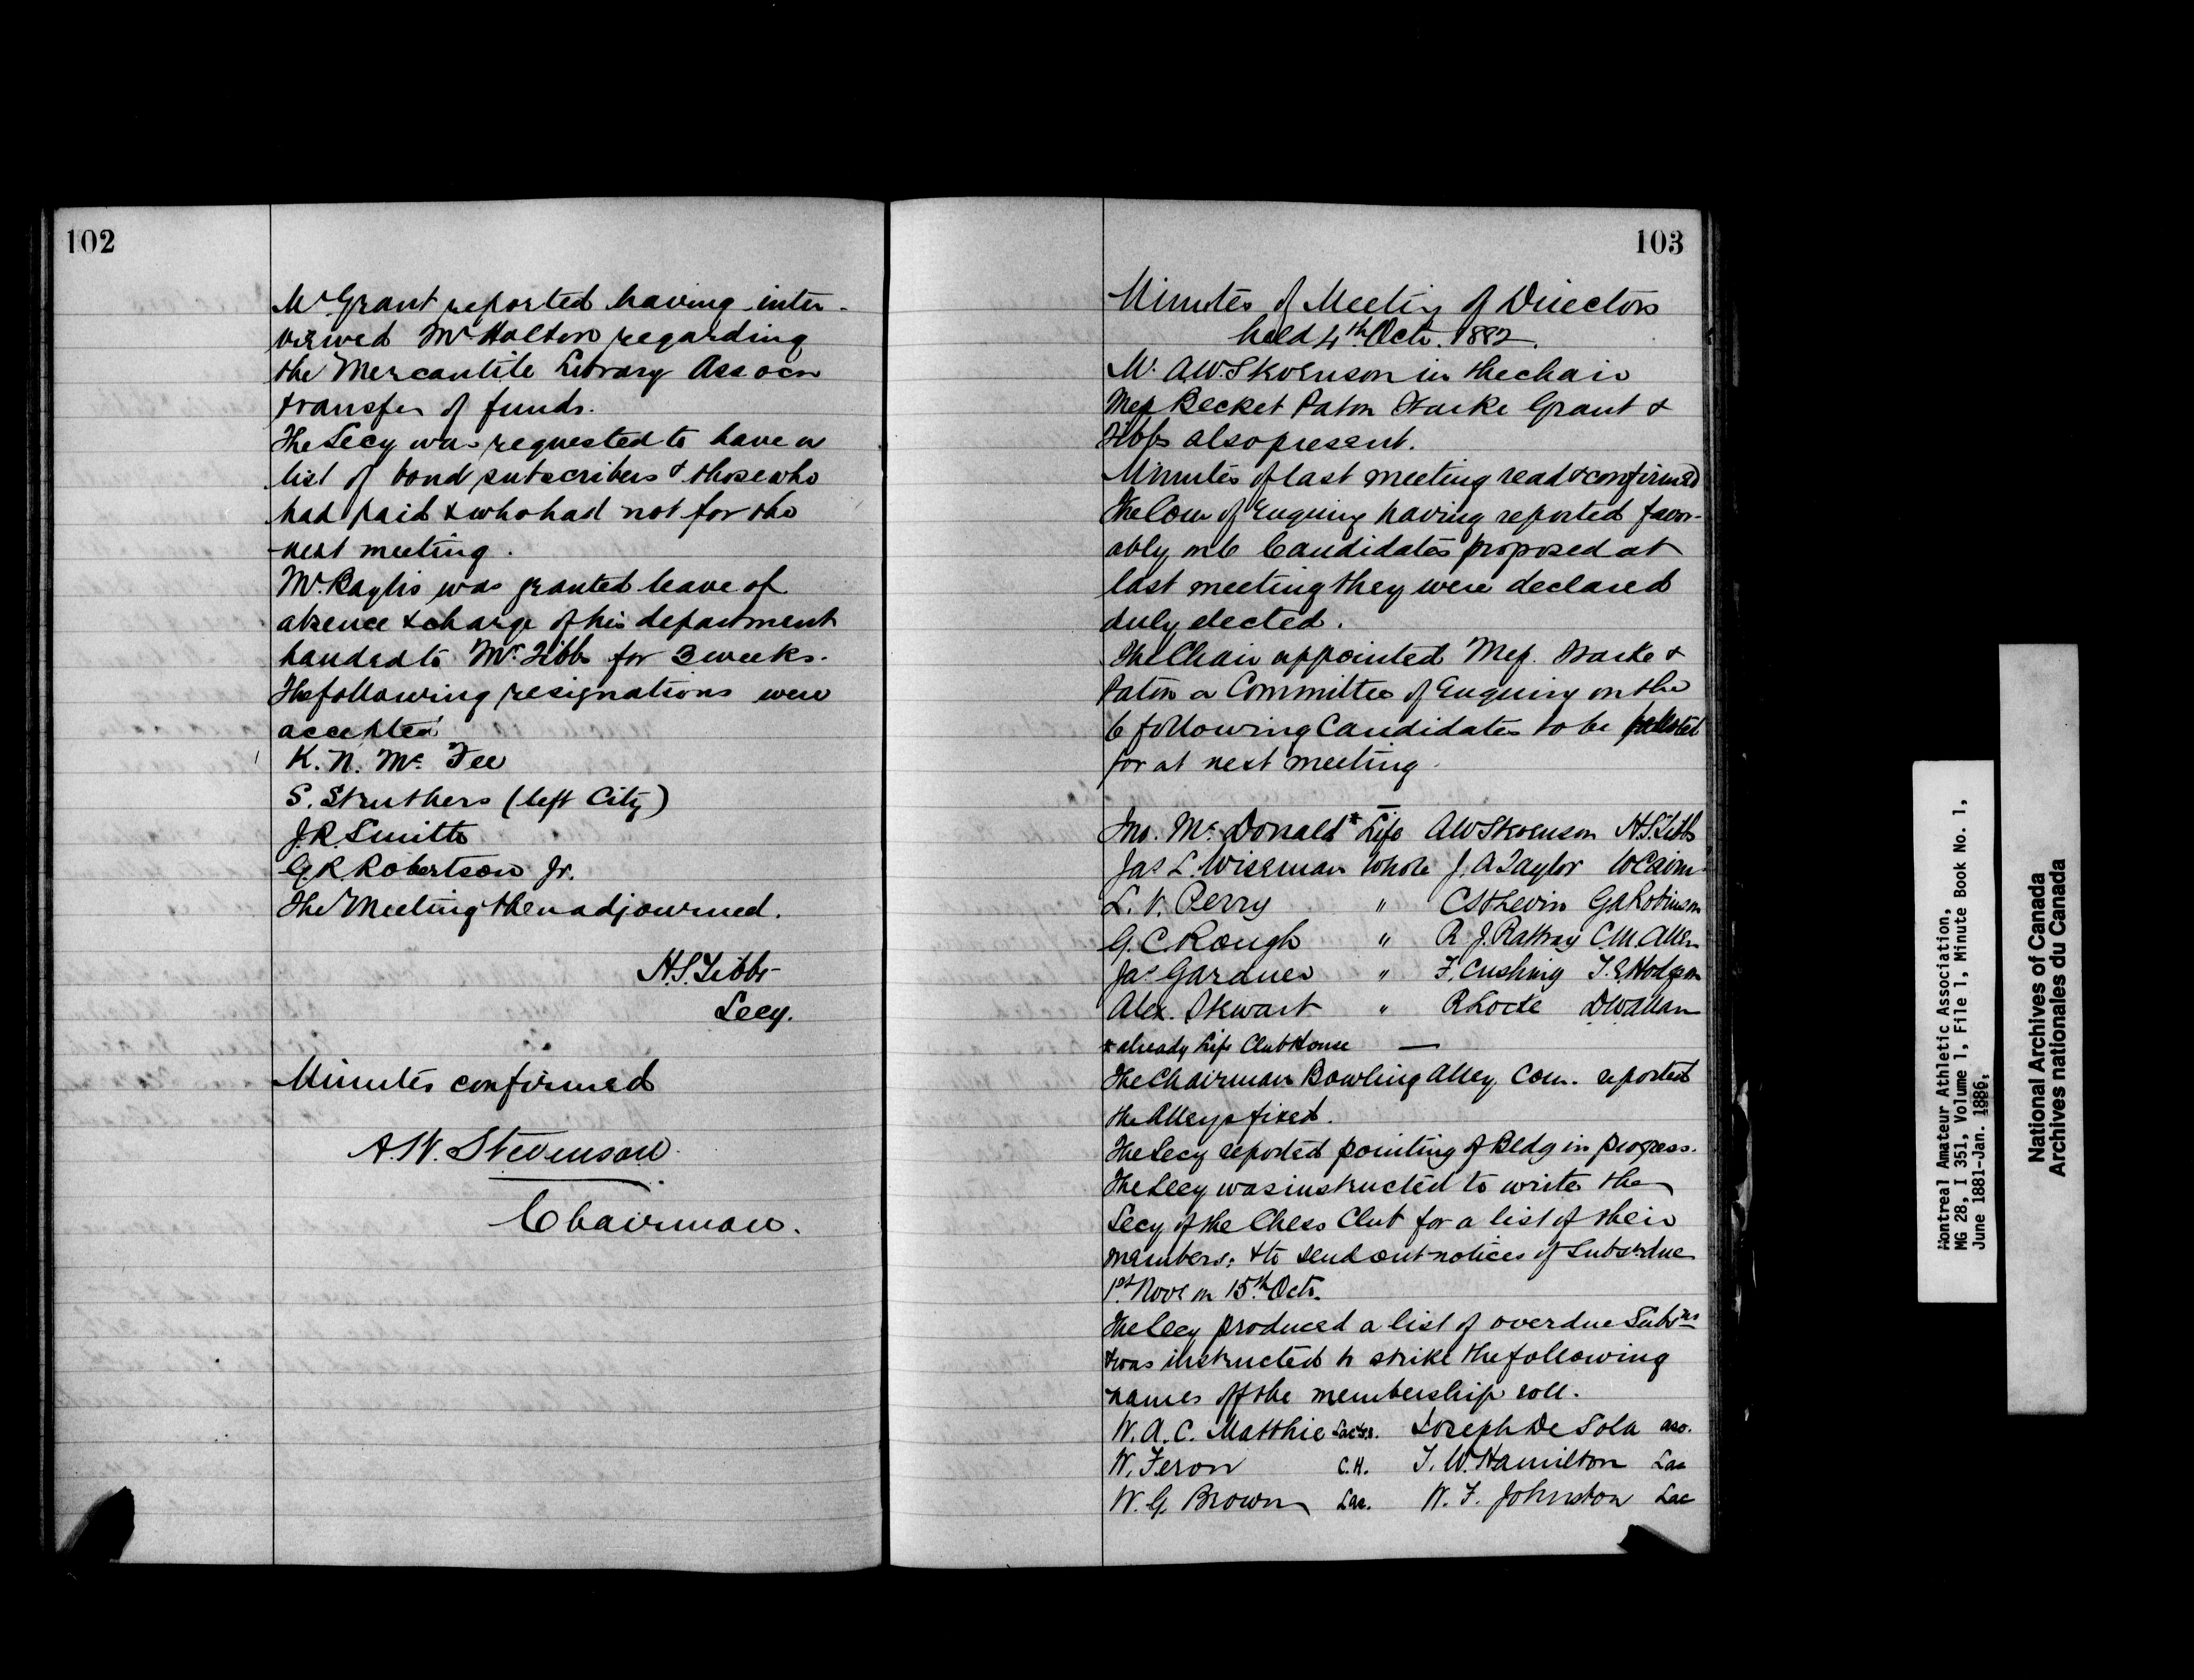 102
Mr Grant reported having inter-
viewed Mr Holton regarding
the Mercantile Library Assocn
transfer of funds.
The Secy was requested to have a
list of bond subscribers & those who
had paid & who had not for the
next meeting.
Mr. Baylis was granted leave of
absence & charge of his department
handed to Mr. Tibbs for 3 weeks.
The following resignations were
accepted
K. N. Mc Fee
S. Struthers (left City)
J. R. Smith
G. R. Robertson Jr.
The Meeting then adjourned.
H. S. Tibbs
Secy.
Minutes confirmed
A. W. Stevenson
Chairman.
103
Minutes of Meeting of Directors
held 4th Oct. 1882.
Mr. A.W. Stevenson in the chair
Mess Becket Paton Starke Grant &
Tibbs also present.
Minutes of last meeting read & confirmed
The Com of Enquiry having reported favor-
ably on 6 Candidates proposed at
last meeting they were declared
duly elected.
The Chair appointed Mess. Starke &
Paton a Committee of Enquiry on the
6 following Candidates to be balloted
for at next meeting.
Jno. Mc Donald * Life A W Stevenson H. S. Tibbs
Jas L. Wiseman Whole J. A Taylor W Cairns
L. V. Perry " G A Robinson
G. C. Rough " R. J. Rattray C. M. Allen
Jas Gardner " F. Cushing T. E. Hodgson
Alex. Stewart " R Locke D W Allan
* already Life Club House
The Chairman Bowling Alley Com. reported
the Alleys fixed.
The Secy reported pointing of Bldg in progress.
The Secy was instructed to write the
Secy of the Chess Club for a list of their
members; & to send out notices of Subs due
1st Nov on 15th Oct.
The Secy produced a list of overdue Subns
& was instructed to strike the following
names off the membership roll.
W. A. C. Matthie Joseph De Sola aso.
W. Feron C.H. T. W. Hamilton Lac
W. G. Brown Lac. W. F. Johnston Lac
Montreal Amateur Athletic Association,
MG 28, I 351, Volume 1, File 1, Minute Book No. 1,
June 1881-Jan. 1886,
National Archives of Canada
Archives nationales du Canada